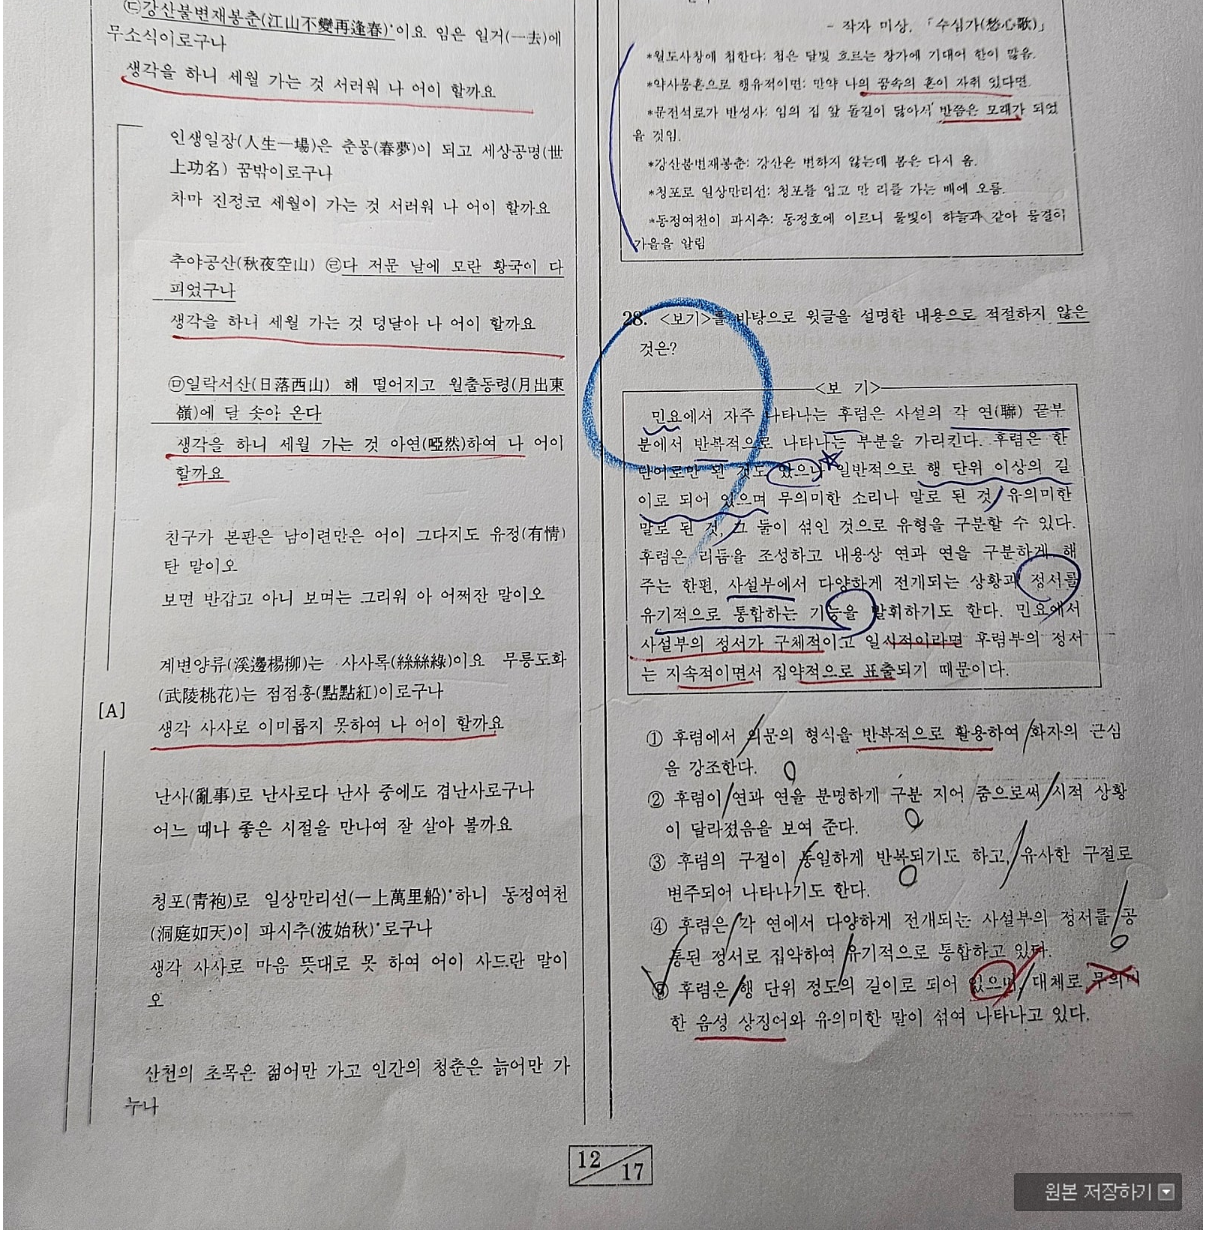 ㉢강산불변재봉춘(江山不變再逢春)*이요 임은 일거(一去)에
무소식이로구나
생각을 하니 세월 가는 것 서러워 나 어이 할까요
인생일장(人生一場)은 춘몽(春夢)이 되고 세상공명(世
上功名) 꿈밖이로구나
차마 진정코 세월이 가는 것 서러워 나 어이 할까요
추야공산(秋夜空山) ㉣다 저문 날에 모란 황국이 다
피었구나
생각을 하니 세월 가는 것 덩달아 나 어이 할까요
㉤일락서산(日落西山) 해 떨어지고 월출동령(月出東
嶺)에 달 솟아 온다
생각을 하니 세월 가는 것 아연(啞然)하여 나 어이
할까요
친구가 본판은 남이련만은 어이 그다지도 유정(有情)
탄 말이오
보면 반갑고 아니 보며는 그리워 아 어쩌잔 말이오
계변양류(溪邊楊柳)는 사사록(絲絲綠)이요 무릉도화
(武陵桃花)는 점점홍(點點紅)이로구나
[A]
생각 사사로 이미롭지 못하여 나 어이 할까요
난사(亂事)로 난사로다 난사 중에도 겹난사로구나
어느 때나 좋은 시절을 만나여 잘 살아 볼까요
청포(靑袍)로 일상만리선(一上萬里船)*하니 동정여천
(洞庭如天)이 파시추(波始秋)*로구나
생각 사사로 마음 뜻대로 못 하여 어이 사드란 말이
오
산천의 초목은 젊어만 가고 인간의 청춘은 늙어만 가
누나
- 작자 미상, 「수심가(愁心歌)」
*월도사창에 첩한다: 첩은 달빛 흐르는 창가에 기대어 한이 많음.
*약사몽혼으로 행유적이면: 만약 나의 꿈속의 혼이 자취 있다면.
*문전석로가 반성사: 임의 집 앞 돌길이 닳아서 반쯤은 모래가 되었
을 것임.
*강산불변재봉춘: 강산은 변하지 않는데 봄은 다시 옴.
*청포로 일상만리선: 청포를 입고 만 리를 가는 배에 오름.
*동정여천이 파시추: 동정호에 이르니 물빛이 하늘과 같아 물결이
가을을 알림
28. <보기>를 바탕으로 윗글을 설명한 내용으로 적절하지 않은
것은?
<보 기>
민요에서 자주 나타나는 후렴은 사설의 각 연(聯) 끝부
분에서 반복적으로 나타나는 부분을 가리킨다. 후렴은 한
단어로만 된 것도 있으나 일반적으로 행 단위 이상의 길
이로 되어 있으며 무의미한 소리나 말로 된 것, 유의미한
말로 된 것, 그 둘이 섞인 것으로 유형을 구분할 수 있다.
후렴은 리듬을 조성하고 내용상 연과 연을 구분하게 해
주는 한편, 사설부에서 다양하게 전개되는 상황과 정서를
유기적으로 통합하는 기능을 발휘하기도 한다. 민요에서
사설부의 정서가 구체적이고 일시적이라면 후렴부의 정서
는 지속적이면서 집약적으로 표출되기 때문이다.
① 후렴에서 의문의 형식을 반복적으로 활용하여 화자의 근심
을 강조한다.
② 후렴이 연과 연을 분명하게 구분 지어 줌으로써 시적 상황
이 달라졌음을 보여 준다.
③ 후렴의 구절이 동일하게 반복되기도 하고, 유사한 구절로
변주되어 나타나기도 한다.
④ 후렴은 각 연에서 다양하게 전개되는 사설부의 정서를 공
통된 정서로 집약하여 유기적으로 통합하고 있다.
⑤ 후렴은 행 단위 정도의 길이로 되어 있으며, 대체로 무의미
한 음성 상징어와 유의미한 말이 섞여 나타나고 있다.
12
17
원본 저장하기